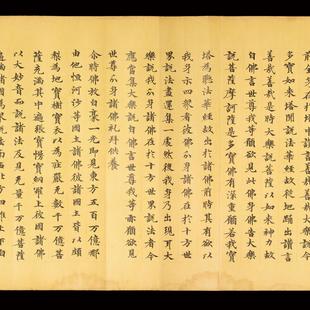 全身在於塔中讚言善哉善哉大樂說今
多寶如來塔聞說法華經故從地踊出讚言
善哉善哉是時大樂說菩薩以如來神力故
白佛言世尊我等願欲見此佛身佛告大樂
說菩薩摩訶薩是多寶佛有深重願若我寶
塔為聽法華經故出於諸佛前時其有欲以
我身示四眾者彼佛分身諸佛在於十方世
界說法盡還集一處然後我身乃出現耳大
樂說我分身諸佛在於十方世界說法者今
應當集大樂說白佛言世尊我等亦願欲見
世尊分身諸佛禮拜供養
爾時佛放白毫一光即見東方五百万億那
由他恒河沙等國土諸佛彼諸國土皆以頗
梨為地寶樹寶衣以為莊嚴无數千万億菩
薩充滿其中遍張寶幔寶網羅上彼國諸佛
以大妙音而說諸法及見无量千万億菩薩
遍滿諸國為眾說法南西北方四維上下